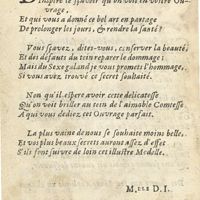 Inspire le sçavoir qu'on voit en votre Ou-
vrage,
Et qui vous a donné ce bel art en partage
De prolonger les jours, & rendre la santé?
Vous sçavez, dites-vous, conserver la beauté,
Et des défauts du tein reparer le dommage;
Mais du Sexe galand je vous promets l'hommage,
Si vous avez trouvé ce secret souhaité.
Non qu'il espere avoir cette delicatesse
Qu'on voit briller au tein de l'aimable Comtesse
A qui vous dediez cet Ouvrage parfait.
La plus vaine de nous se souhaite moins belle,
Et vos plus beaux secrets auront assez d'effet
S'ils font suivre de loin cet illustre Modelle.
M. LLE D. I.